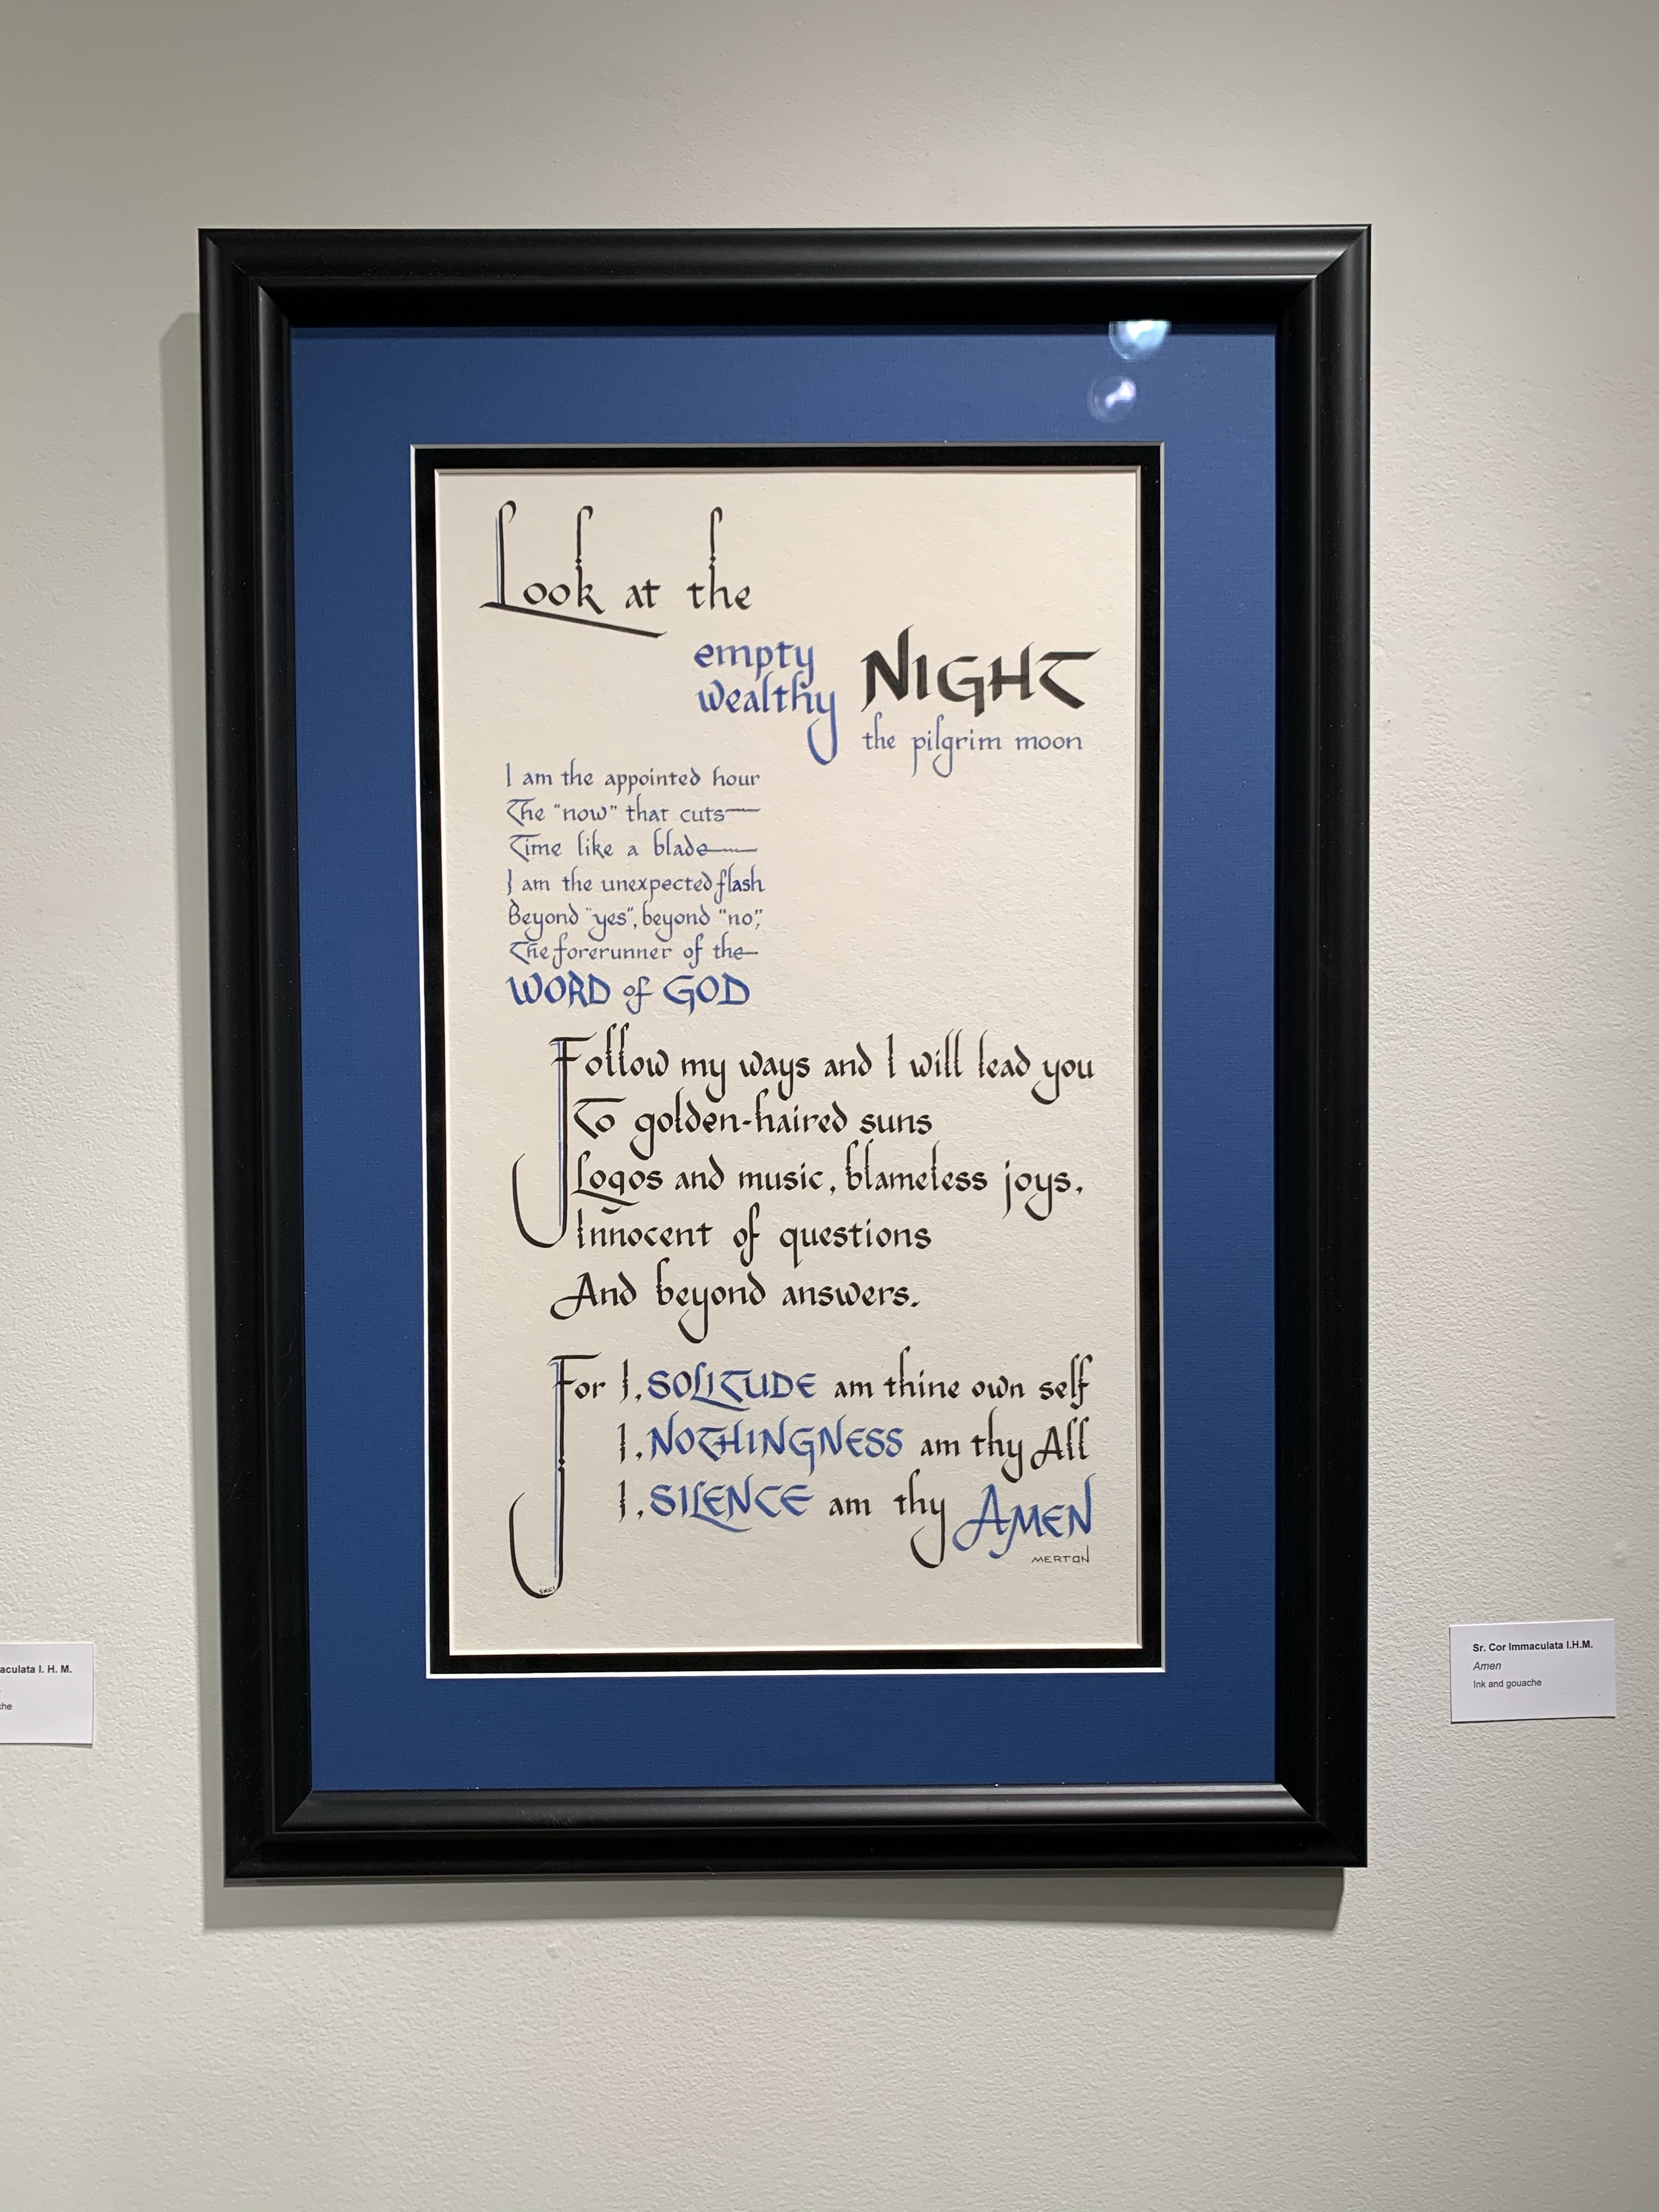 Look at the
empty
wealthy NIGHT
the pilgrim moon
I am the appointed hour
The "now" that cuts
Time like a blade
I am the unexpected flash
Beyond "yes", beyond "no",
The forerunner of the
WORD of GOD
Follow my ways and I will lead you
To golden-haired suns
Logos and music, blameless joys,
Innocent of questions
And beyond answers.
For I, SOLITUDE am thine own self
I, NOTHINGNESS am thy All
I, SILENCE am thy AMEN
MERTON
SMCI
aculata I. H. M.
che
Sr. Cor Immaculata I.H.M.
Amen
Ink and gouache